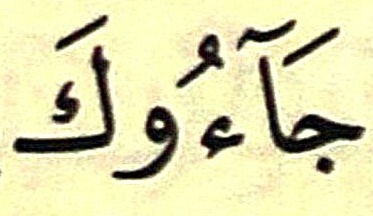 جَآءُوكَ